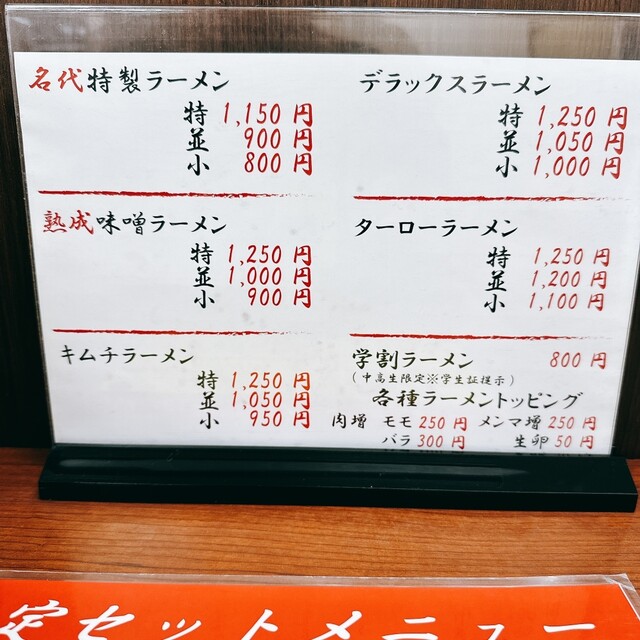 名代特製ラーメン
特 1,150 円
並 900 円
小 800 円
熟成味噌ラーメン
特 1,250 円
並 1,000 円
小 900 円
キムチラーメン
特 1,250 円
並 1,050 円
小 950 円
デラックスラーメン
特 1,250 円
並 1,050 円
小 1,000 円
ターローラーメン
特 1,250 円
並 1,200 円
小 1,100 円
学割ラーメン 800 円
(中高生限定※学生証提示)
各種ラーメントッピング
肉増 モモ 250 円 メンマ増 250 円
バラ 300 円 生卵 50 円
定セットメニュー